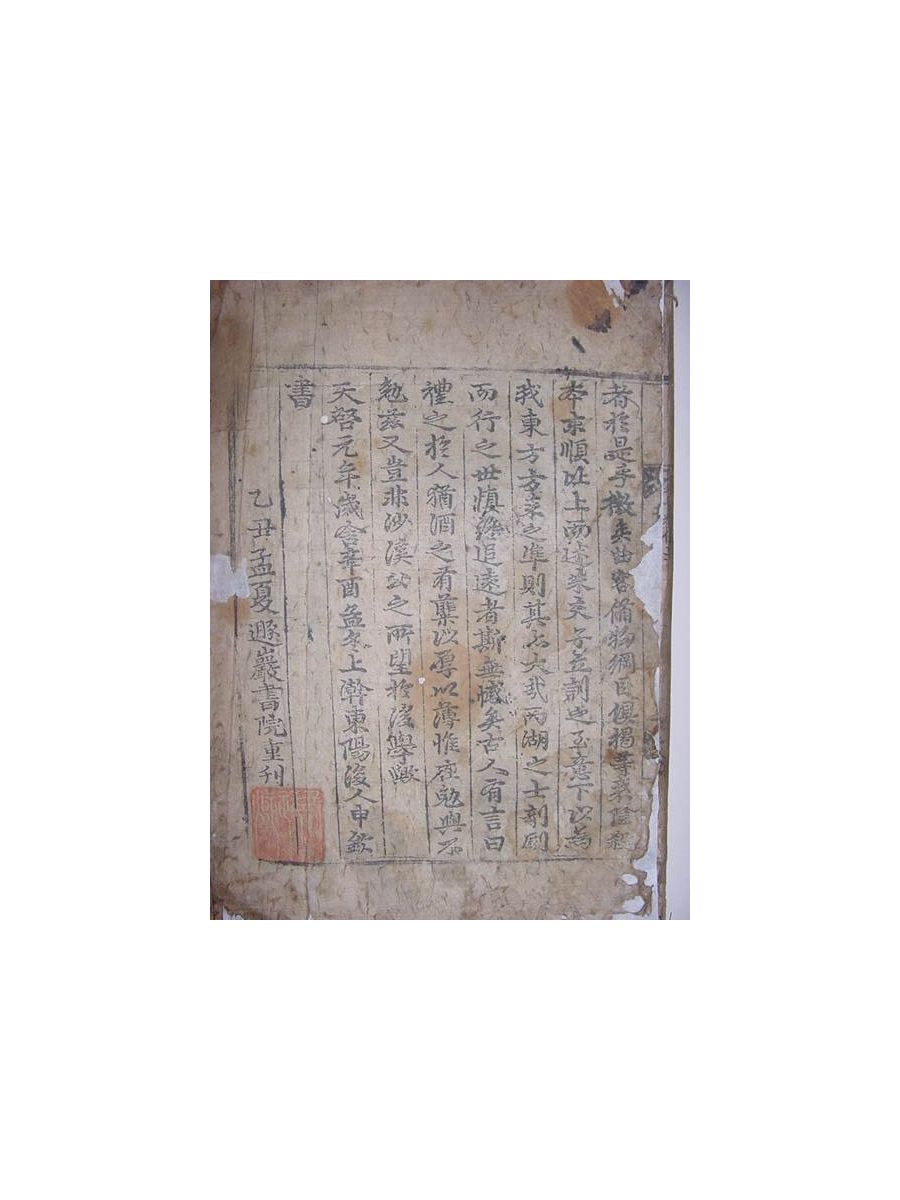 者於是乎徵矣曲書備物綱目俱揭等衰隆殺
本末順比上而述朱夫子立訓之至意下以爲
我東方方來之準則其亦大哉兩湖之士剞劂
而行之世愼終追遠者斯無憾矣古人有言曰
禮之於人猶酒之有蘖以厚以薄惟在勉與不
勉玆又豈非沙溪公之所望於後學歟
天啓元年歲舍辛酉孟冬上澣東陽後人申欽
書
乙丑孟夏遯巖書院重刊